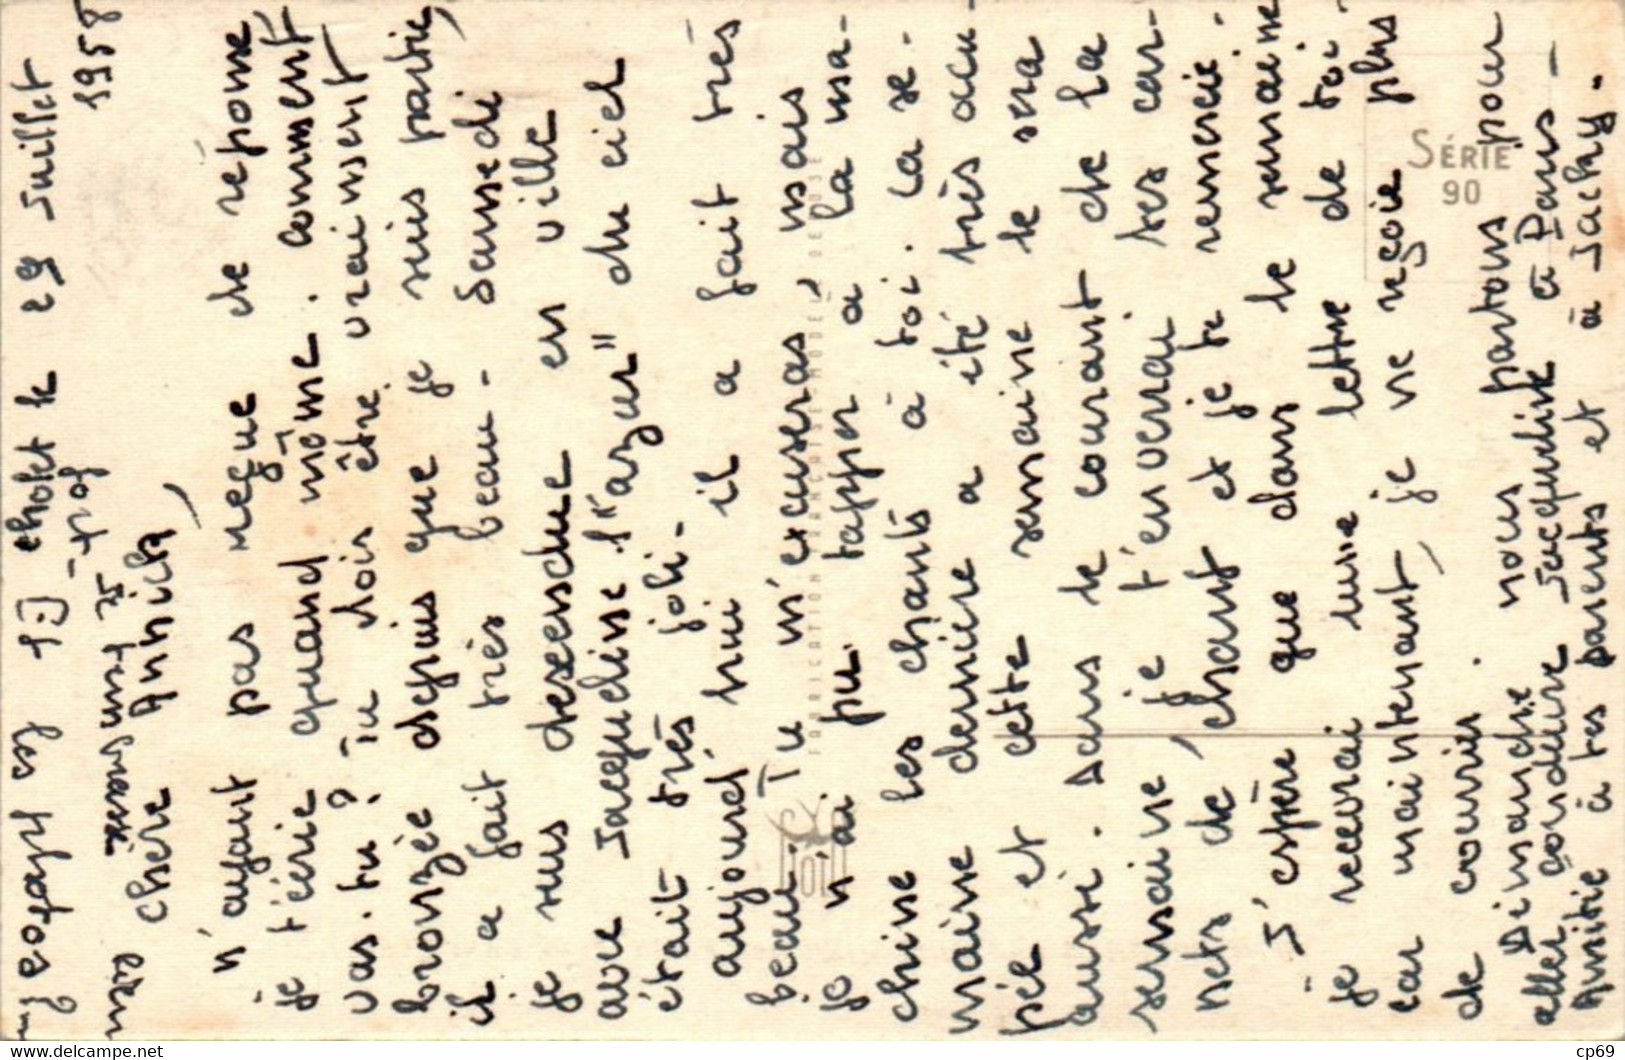 Cholet le 29 Juillet
1958
Chère Annick,
n'ayant pas reçue de réponse,
je t'écrie quand même. comment
vas-tu? Tu dois être vraiment
bronzée depuis que je suis partie,
il a fait très beau. Samedi
je suis descendue en ville
avec Jacqueline l'"azur" du ciel
était très joli.
aujourd'hui il a fait très
beau. Tu m'excuseras, mais
je n'ai pu tapper à la ma-
chine les chants à toi. La se-
maine dernière a été très occu-
pée et cette semaine le sera
aussi. Dans le courant de la
semaine, je t'enverrai tes car-
nets de chant et je te remercie.
J'espère que dans la semaine
je recevrai une lettre de toi.
car maintenant, je ne reçoie plus
de courrier. nous partons pour
Dimanche
aller conduire Jacqueline à Paris -
Amitié à tes parents et à Jacky.
SÉRIE
90
FABRICATION FRANÇAISE
delcampe.net
cp69